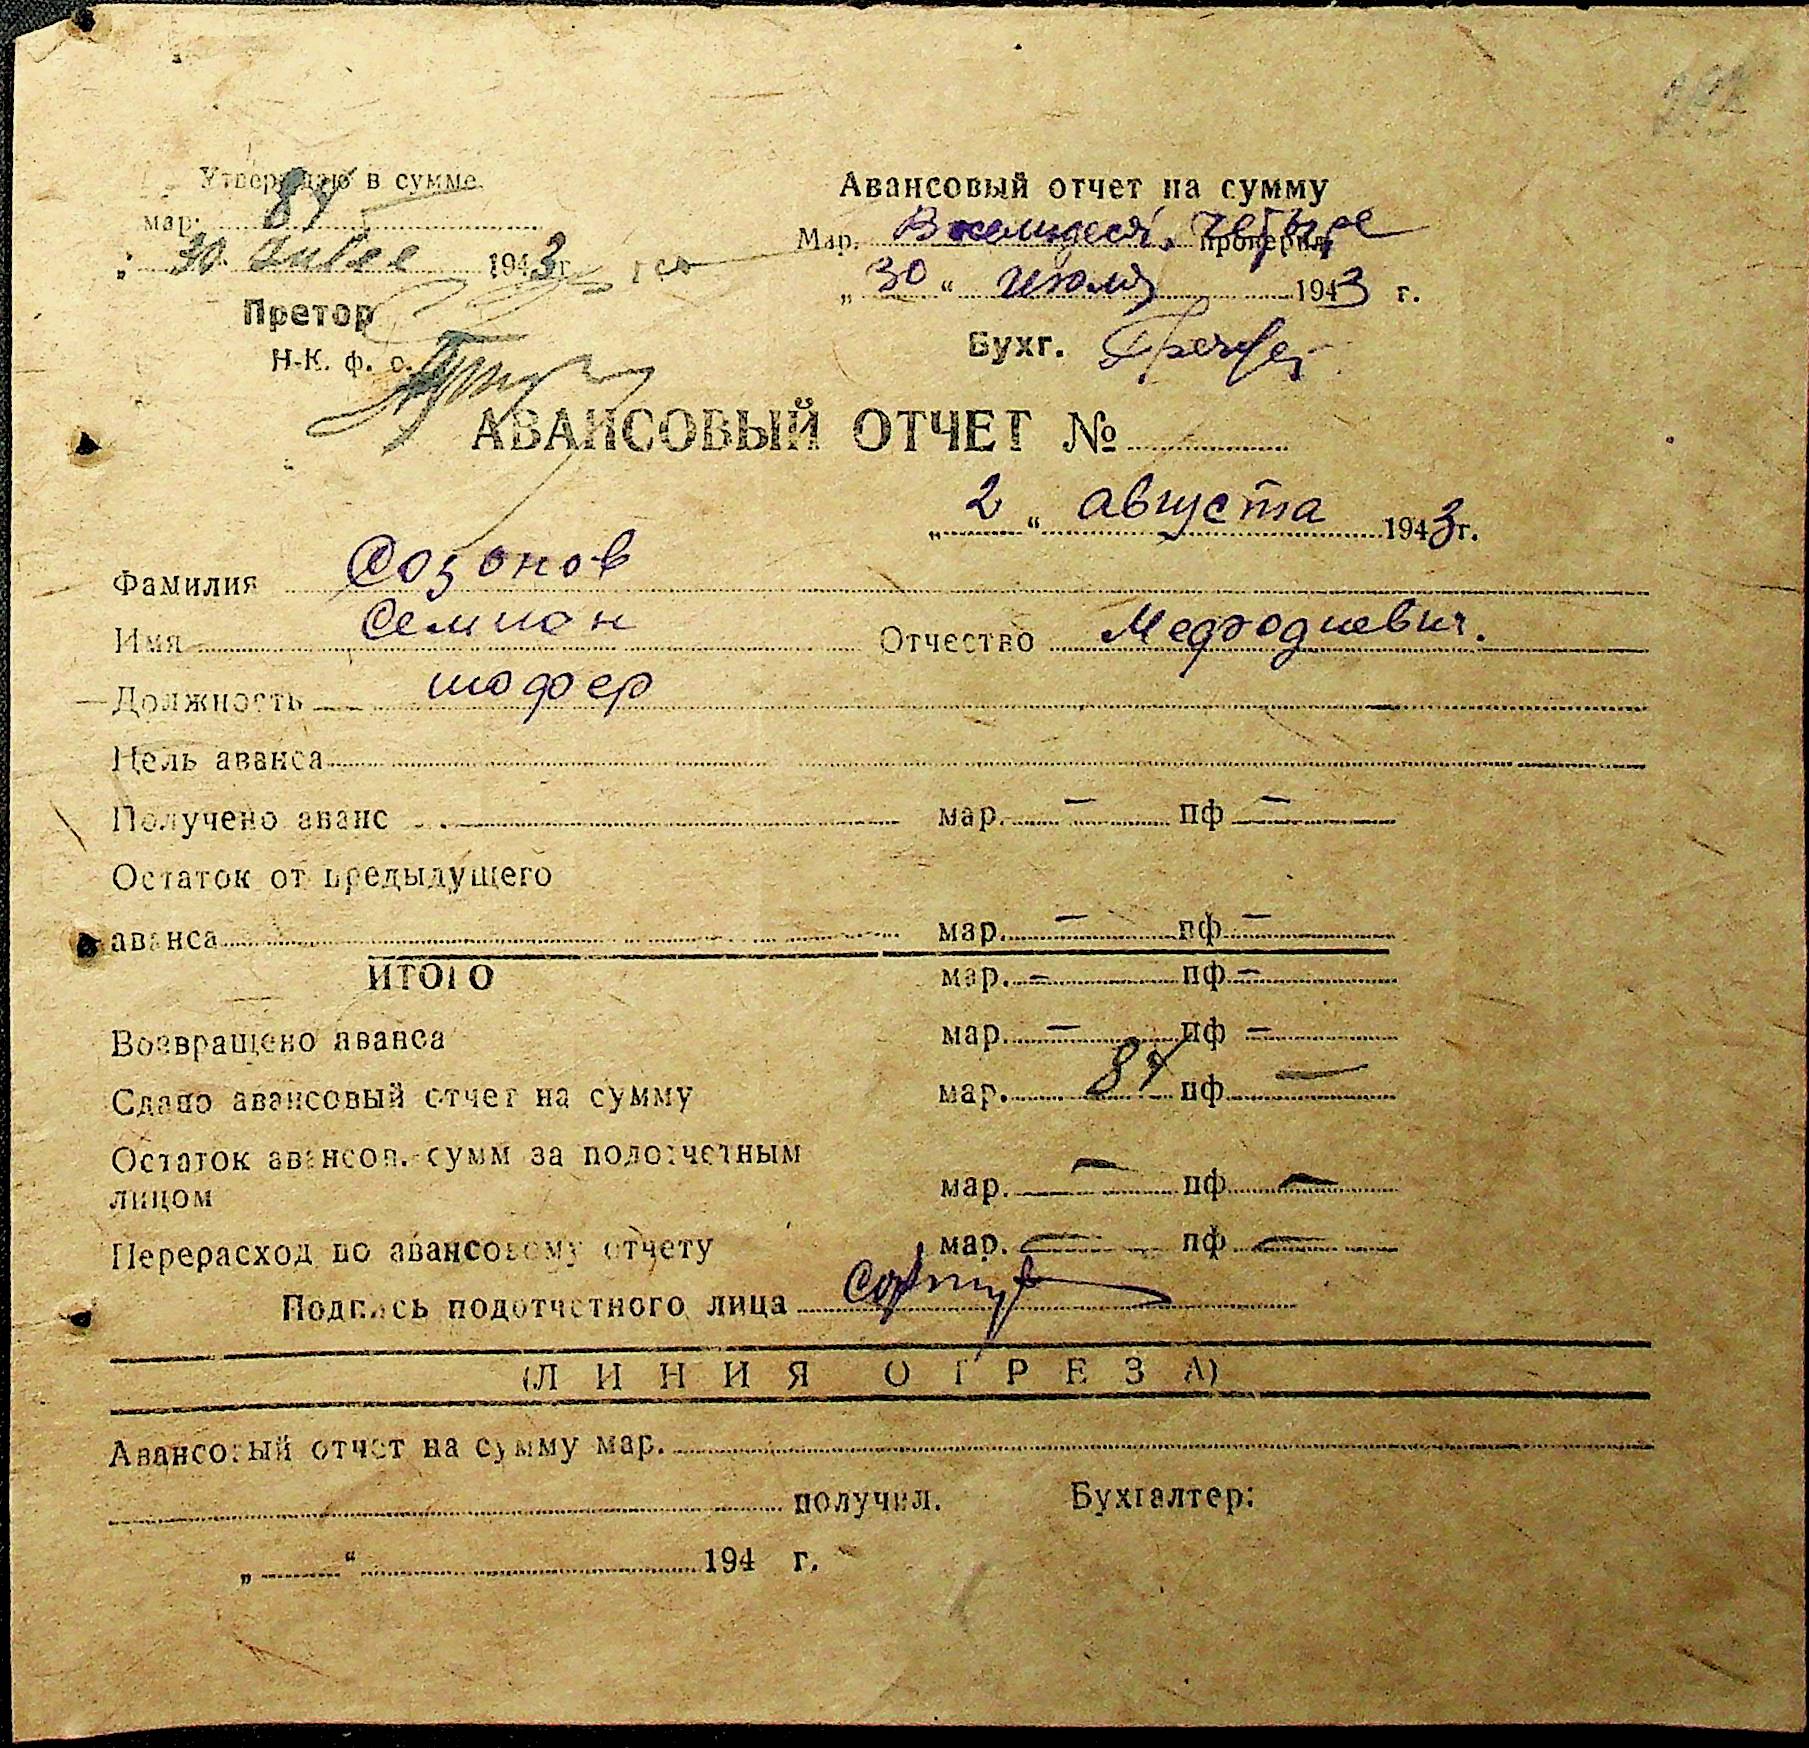 Утверждаю в сумме
мар. 84
„ 30 Iulie 1943 г.
Претор
Н-К. ф. о.
Авансовый отчет на сумму
Мар. Восемьдесят четыре проверил
„ 30 “ июля 1943 г.
Бухг.
АВАНСОВЫЙ ОТЧЕТ №
„ 2 “ августа 1943 г.
Фамилия Созонов
Имя Семион Отчество Мефодиевич.
Должность шофер
Цель аванса
Получено аванс мар. — пф —
Остаток от предыдущего
аванса мар. — пф —
ИТОГО мар. — пф —
Возвращено аванса мар. — пф —
Сдано авансовый отчет на сумму мар. 84 пф —
Остаток авансов. сумм за подотчетным
лицом мар. — пф —
Перерасход по авансовому отчету мар. — пф —
Подпись подотчетного лица
(ЛИНИЯ ОТРЕЗА)
Авансовый отчет на сумму мар.
получил. Бухгалтер:
„ “ 194 г.